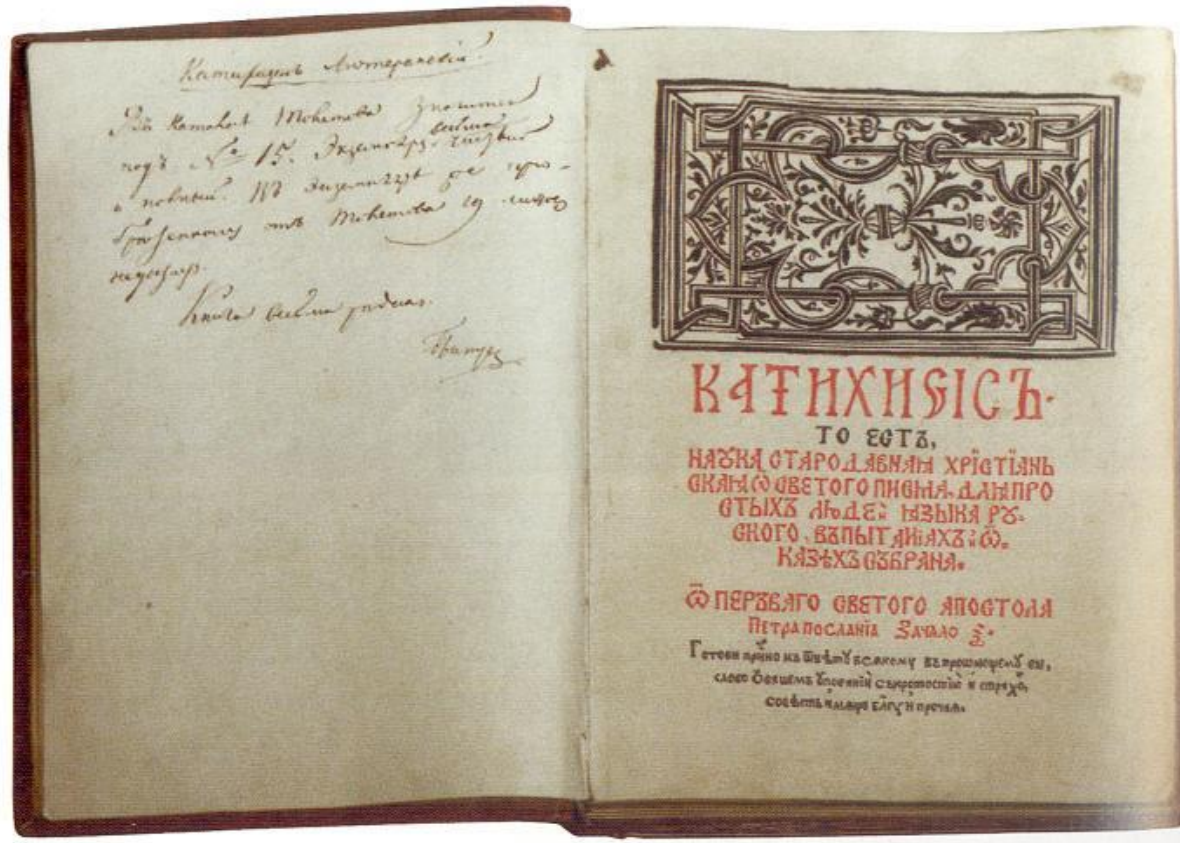 Катихизисъ Лютеранскій.
Въ Каталогѣ Толстова значится
подъ № 15. Экземпляръ весьма чистый
и полный. Въ экземплярѣ
отъ Толстова 19 листовъ
Книга весьма редкая.
КАТИХИЅІСЪ.
ТО ЕСТЪ,
НАꙊКА СТАРОДАВНАꙖ ХРІСТІАНЬ
СКАꙖ Ѿ СВЕТОГО ПИСМА, ДЛꙖ ПРО
СТЫХЪ ЛЮДЕЙ ꙖЗЫКА РꙊ
СКОГО, ВЪ ПЫТАНІАХЪ И Ѿ
КАЗѢХЪ СЪБРАНА.
Ѿ ПЕРЪВАГО СВЕТОГО АПОСТОЛА
ПЕТРА ПОСЛАНІА ЗАЧАЛО
Готови присно къ ѿвѣтꙋ всакомꙋ въпрошающемꙋ вы,
слово ѡ вашемъ ꙋпованіи съ кротостію и страхѡ,
совѣсть имѣюще блгꙋ и прочаа.